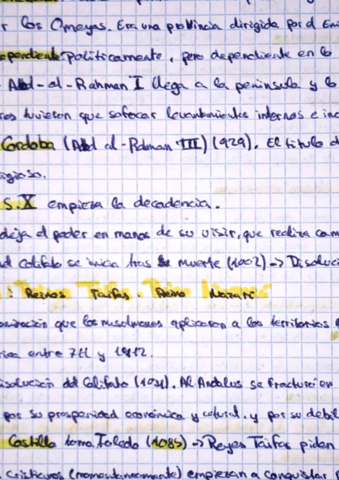 r los Omeyas. Era una provincia dirigida por el Emi
ependiente políticamente, pero dependiente en lo
Abd-al-Rahman I llega a la península y lo
res tuvieron que sofocar levantamientos internos e inc
Córdoba (Abd al-Rahman III) (929). El título d
igioso.
S.X empieza la decadencia.
deja el poder en manos de su visir, que realiza cam
del Califato se inicia tras su muerte (1002) -> Disoluci
: Reinos Taifas. Reino Nazarí
ominación que los musulmanes aplicaron a los territorios
rica entre 711 y 1492.
isolución del Califato (1031). Al Andalus se fracturó en
por su prosperidad económica y cultural, y por su debil
Castilla toma Toledo (1085) -> Reyes Taifas piden
Cristianos (momentáneamente) empiezan a conquistar